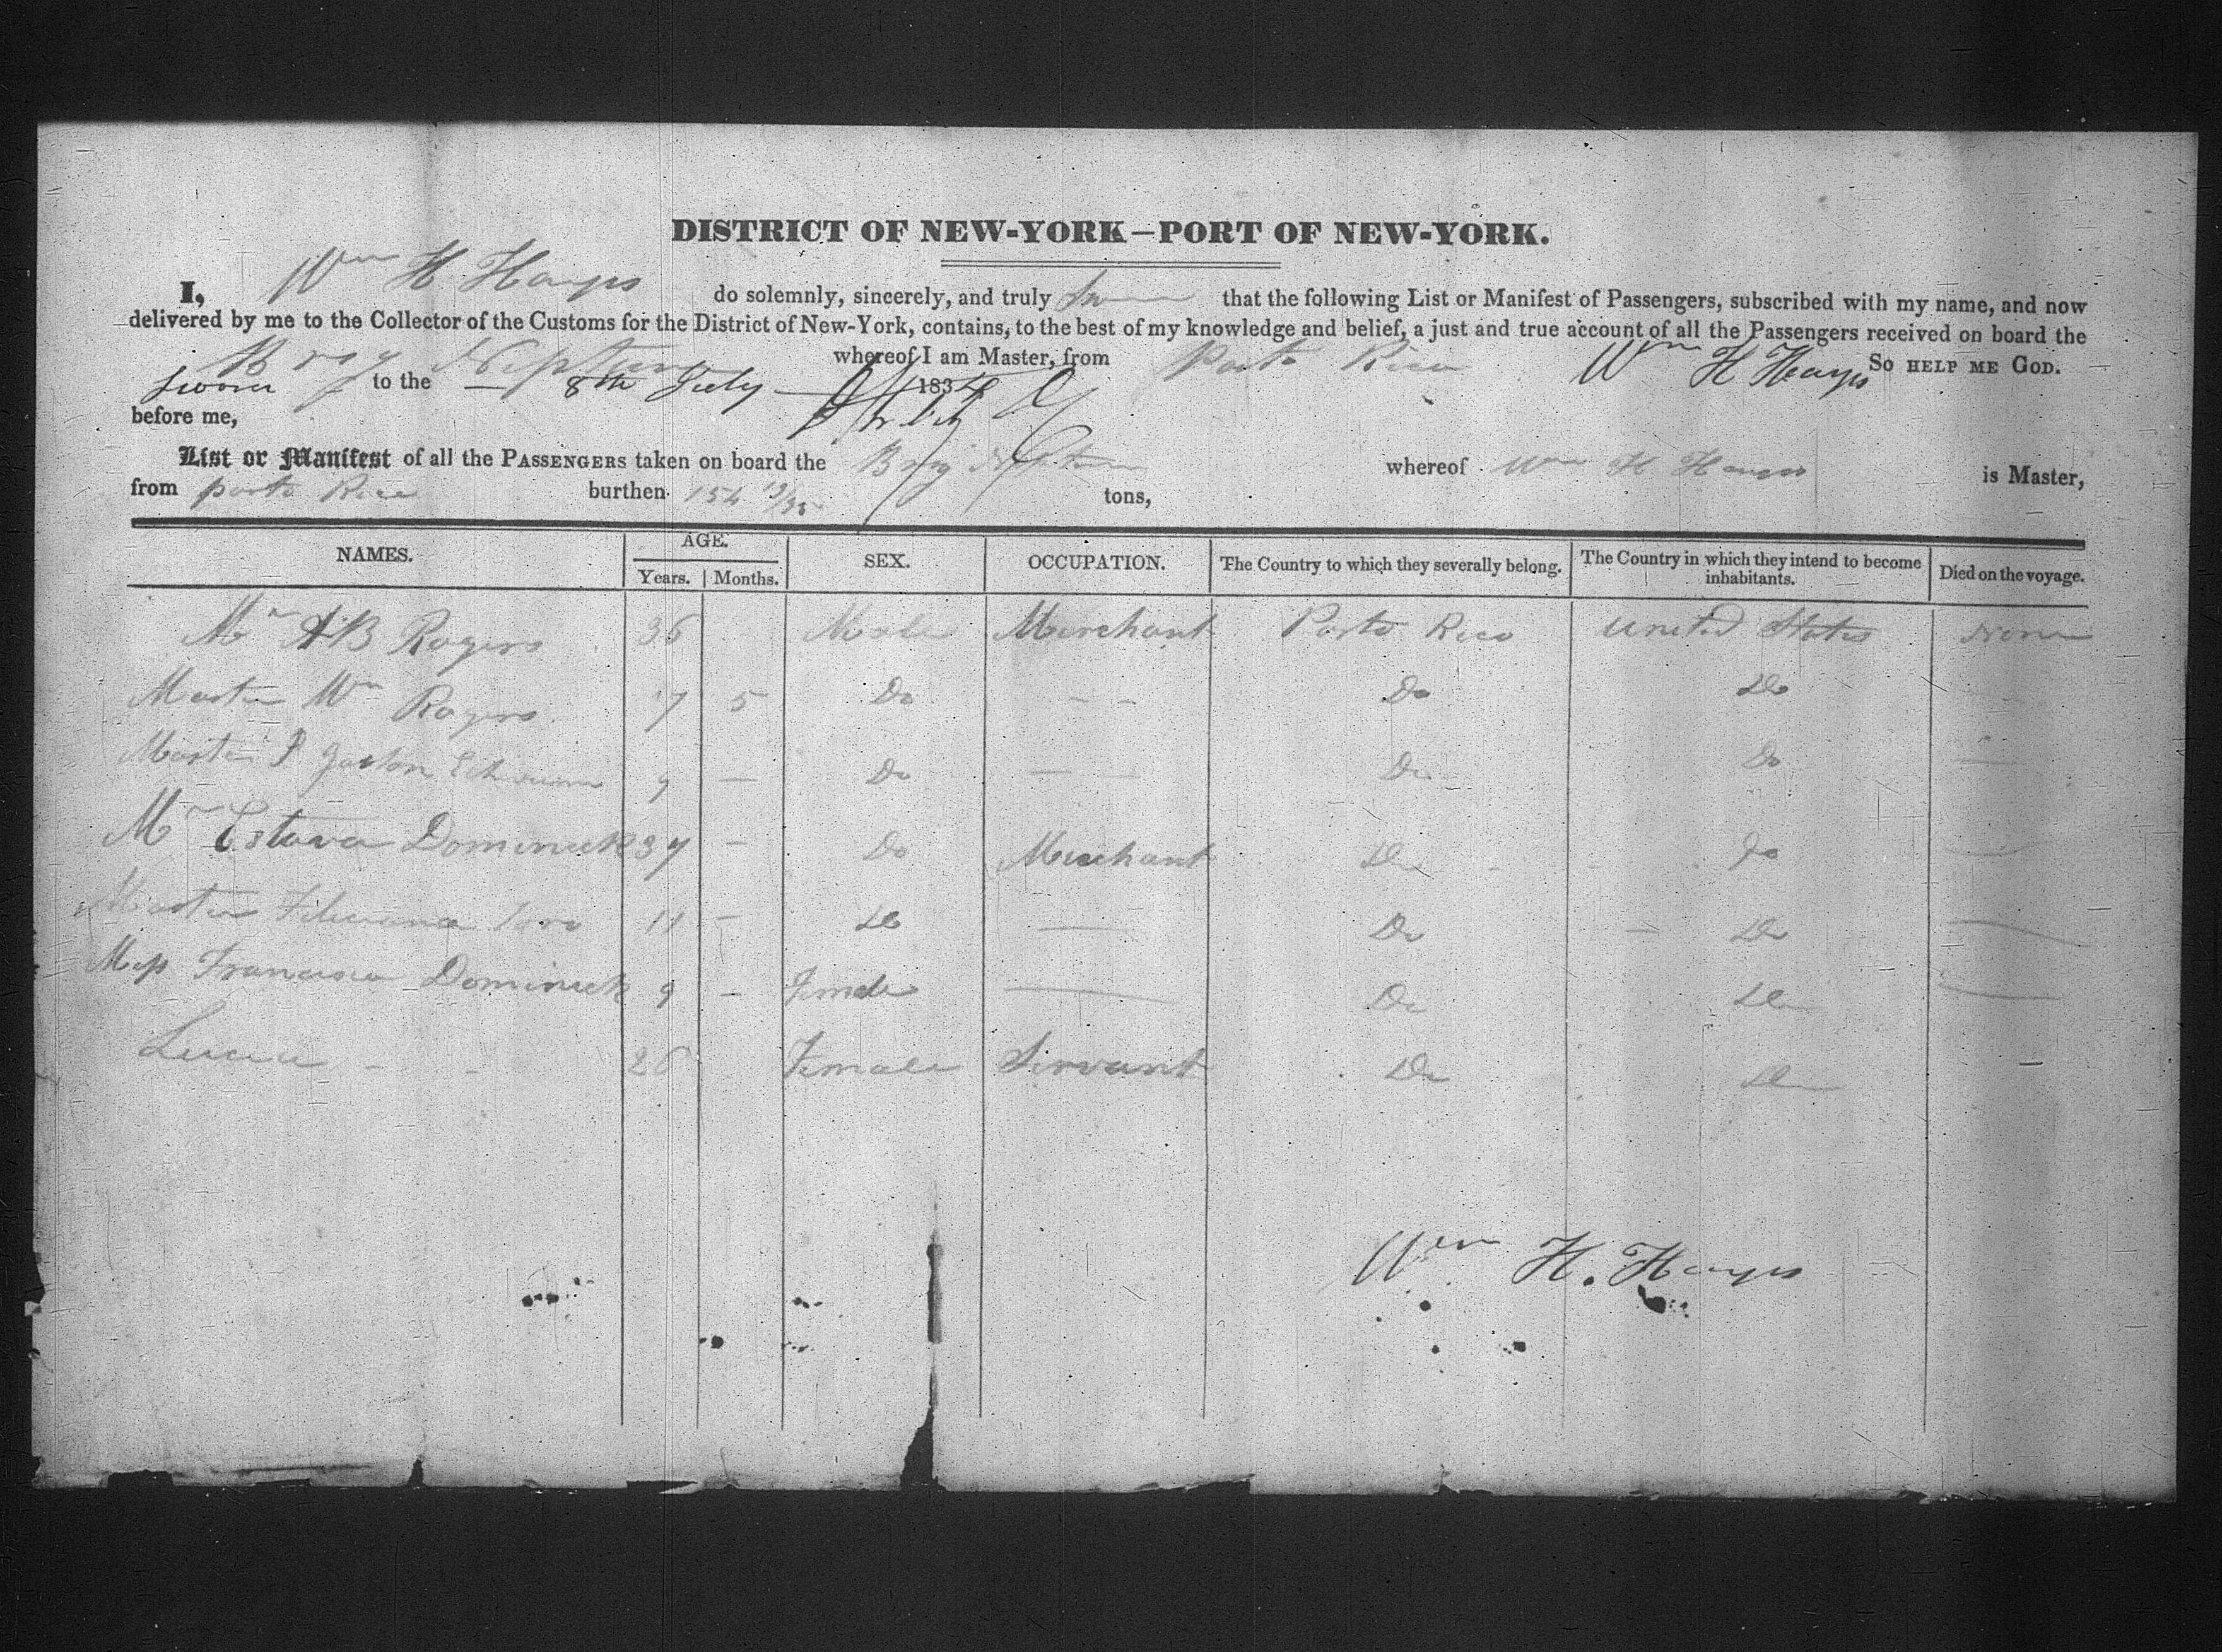 DISTRICT OF NEW-YORK—PORT OF NEW-YORK.
I, Wm H. Hayes do solemnly, sincerely, and truly that the following List or Manifest of Passengers, subscribed with my name, and now
delivered by me to the Collector of the Customs for the District of New-York, contains, to the best of my knowledge and belief, a just and true account of all the Passengers received on board the
Brig Neptune whereof I am Master, from Porto Rico Wm H Hayes So HELP ME GOD.
Sworn to the 8th July 183
before me,
List or Manifest of all the PASSENGERS taken on board the Brig Neptune whereof Wm H Hayes is Master,
from Porto Rico burthen 154 tons,
NAMES. AGE. Years. Months. SEX. OCCUPATION. The Country to which they severally belong. The Country in which they intend to become inhabitants. Died on the voyage.
Mr AB Rogers 36 Male Merchant Porto Rico United States None
Master Wm Rogers 7 5 Do - - Do Do
Master Gaston 9 — Do — Do Do —
Mr Estava Dominick 37 — Do Merchant Do Do —
Master 11 — Do — Do Do —
Miss Francisca Dominick 9 — Female — Do Do —
Lucia - - 26 Female Servant Do Do
Wm H. Hayes